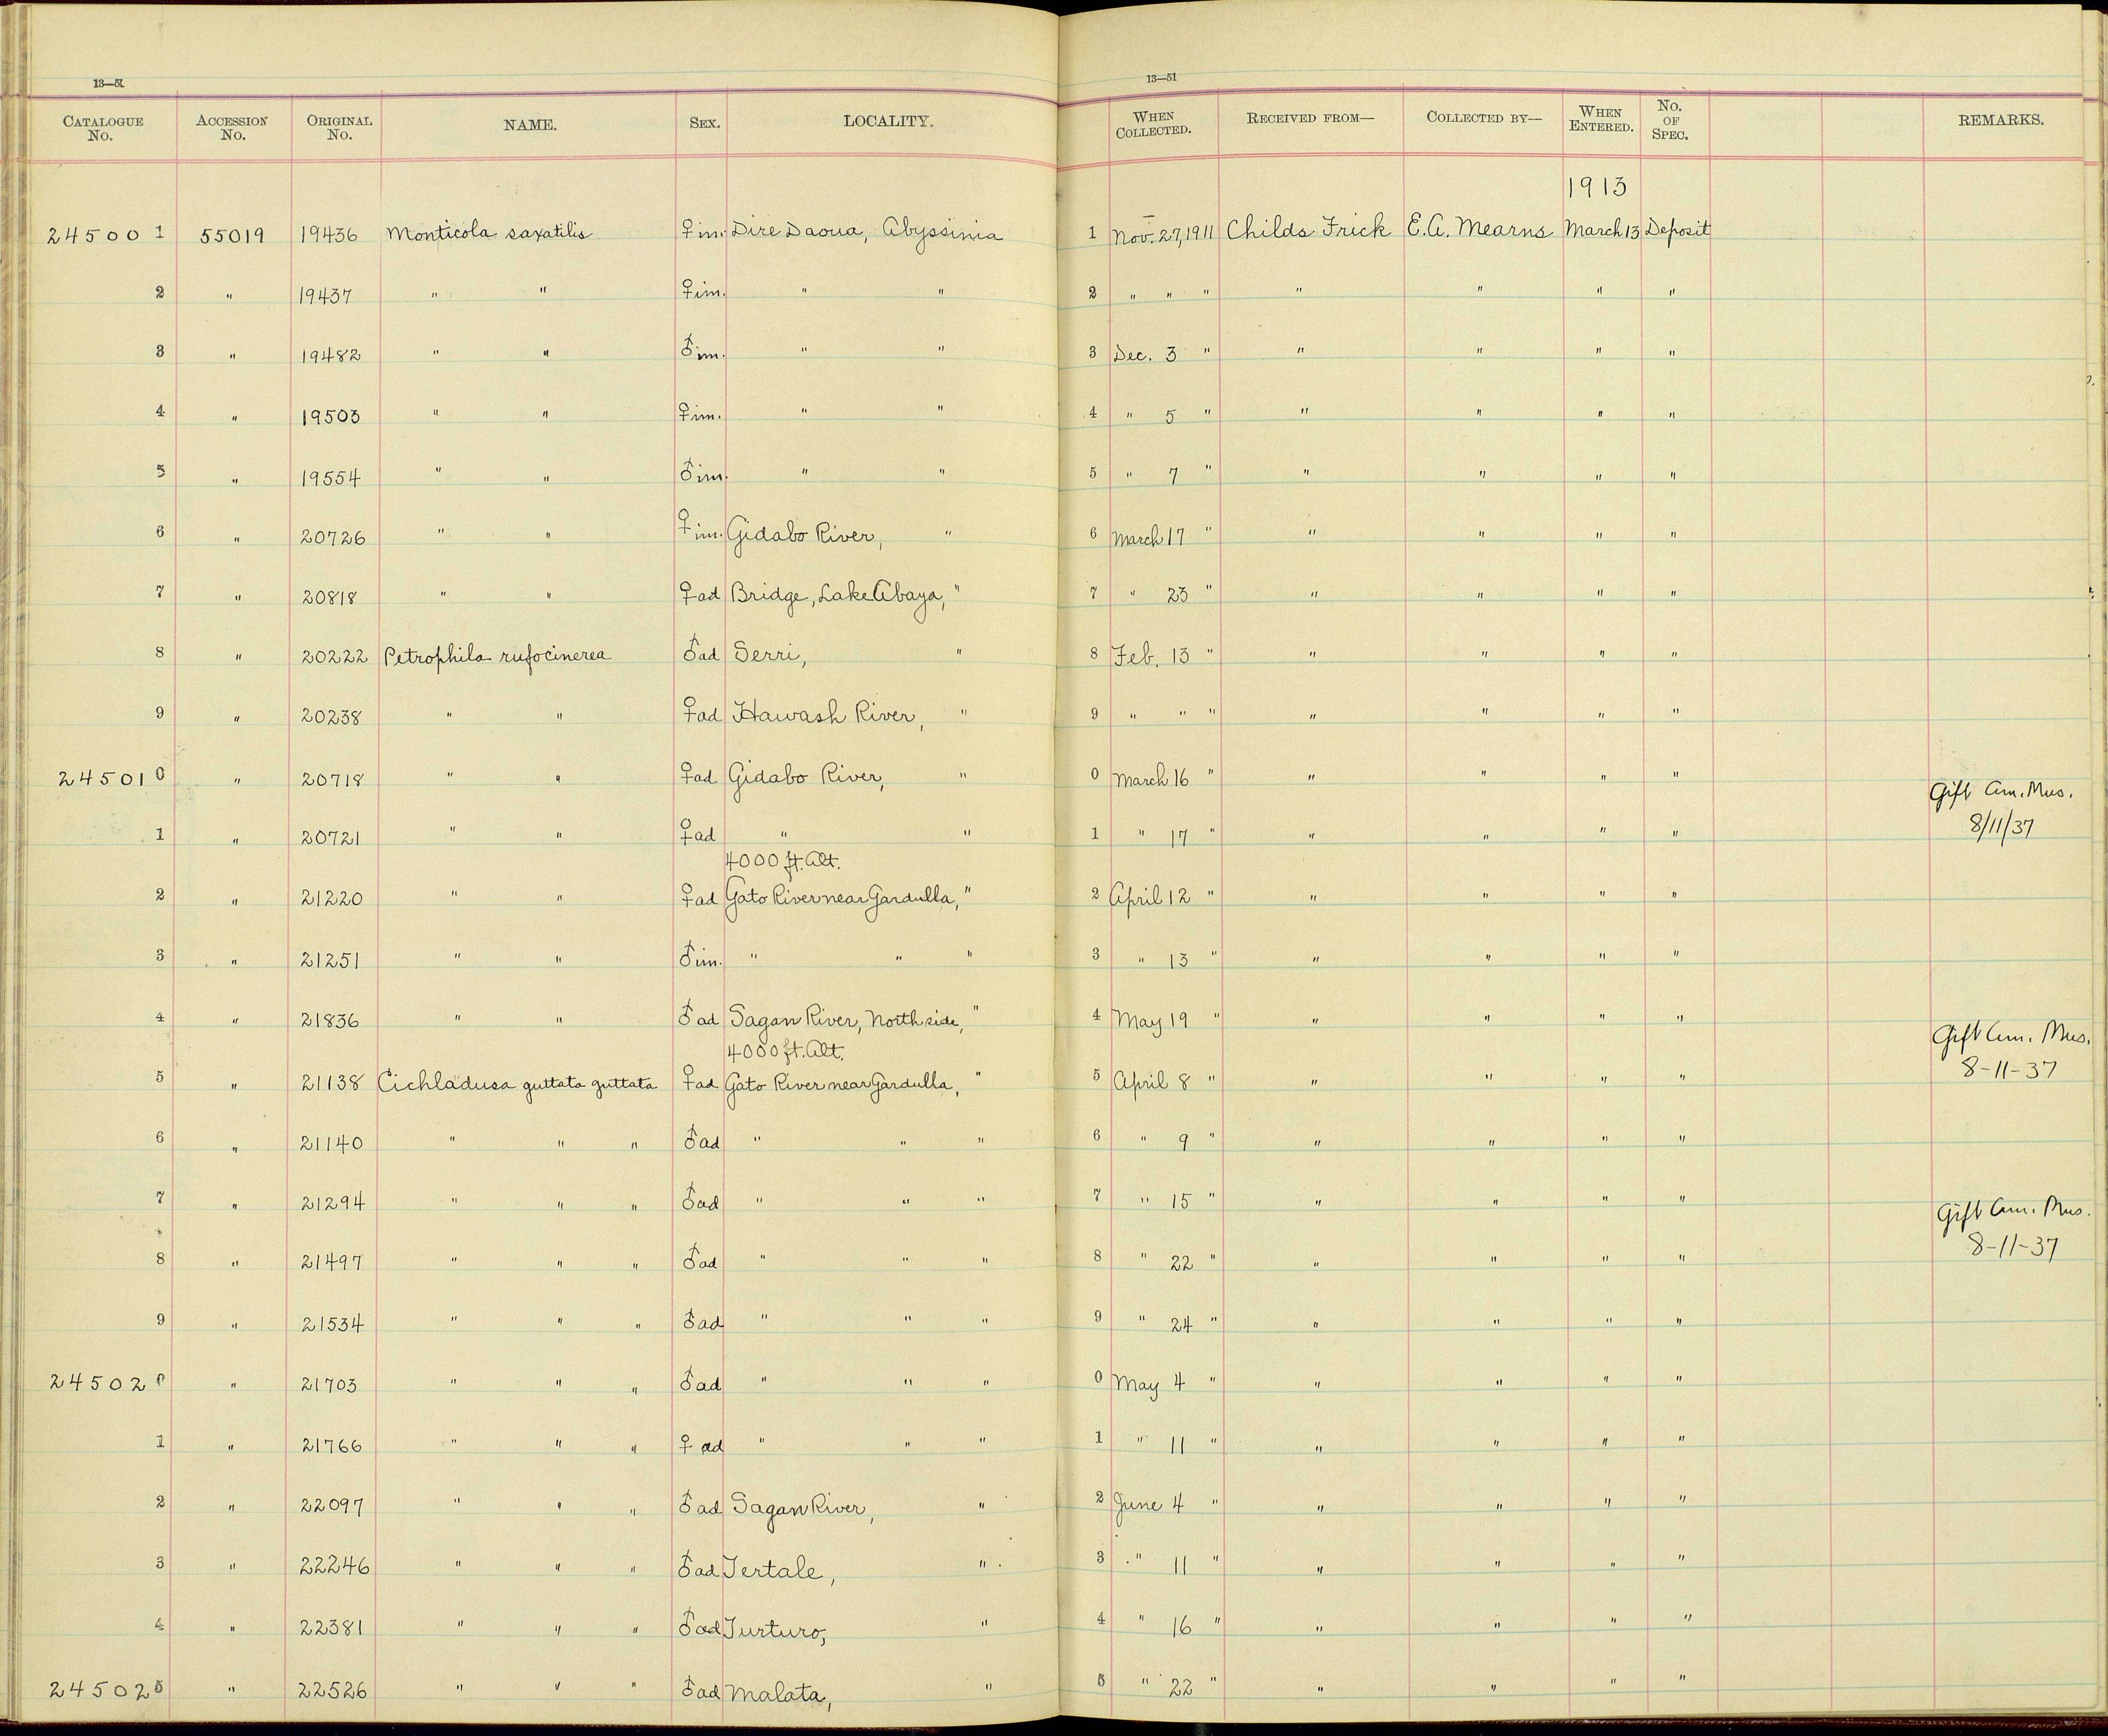 13—51
13—51
CATALOGUE No. ACCESSION No. ORIGINAL No. NAME. SEX. LOCALITY. WHEN COLLECTED. RECEIVED FROM— COLLECTED BY— WHEN ENTERED. No. OF SPEC. REMARKS.
1913
245001 55019 19436 Monticola saxatilis ♀ im. Dire Daoua, Abyssinia 1 Nov. 27, 1911 Childs Frick E. A. Mearns March 13 Deposit
2 " 19437 " " ♀ im. " " 2 " " " " " " "
3 " 19482 " " ♂ im. " " 3 Dec. 3 " " " " "
4 " 19503 " " ♀ im. " " 4 " 5 " " " " "
5 " 19554 " " ♂ im. " " 5 " 7 " " " " "
6 " 20726 " " ♀ im. Gidabo River, " 6 March 17 " " " " "
7 " 20818 " " ♀ ad Bridge, Lake Abaya, " 7 " 23 " " " " "
8 " 20222 Petrophila rufocinerea ♂ ad Serri, " 8 Feb. 13 " " " " "
9 " 20238 " " ♀ ad Hawash River, " 9 " " " " " " "
245010 " 20718 " " ♀ ad Gidabo River, " 0 March 16 " " " " "
Gift Am. Mus.
1 " 20721 " " ♀ ad " " 1 " 17 " " " " " 8/11/37
4000 ft. Alt.
2 " 21220 " " ♀ ad Gato River near Gardulla, " 2 April 12 " " " " "
3 " 21251 " " ♂ im. " " " 3 " 13 " " " " "
4 " 21836 " " ♂ ad Sagan River, North side, " 4 May 19 " " " " "
Gift Am. Mus.
4000 ft. Alt.
5 " 21138 Cichladusa guttata guttata ♀ ad Gato River near Gardulla, " 5 April 8 " " " " " 8-11-37
6 " 21140 " " " ♂ ad " " " 6 " 9 " " " " "
7 " 21294 " " " ♂ ad " " " 7 " 15 " " " " "
Gift Am. Mus.
8 " 21497 " " " ♂ ad " " " 8 " 22 " " " " " 8-11-37
9 " 21534 " " " ♂ ad " " " 9 " 24 " " " " "
245020 " 21703 " " " ♂ ad " " " 0 May 4 " " " " "
1 " 21766 " " " ♀ ad " " " 1 " 11 " " " " "
2 " 22097 " " " ♂ ad Sagan River, " 2 June 4 " " " " "
3 " 22246 " " " ♂ ad Tertale, " 3 " 11 " " " " "
4 " 22381 " " " ♂ ad Turturo, " 4 " 16 " " " " "
245025 " 22526 " " " ♂ ad Malata, " 5 " 22 " " " " "